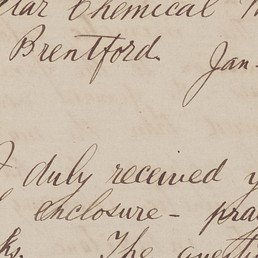 Chemical
Brentford.
Jan.
I duly received
enclosure - pra
The questi